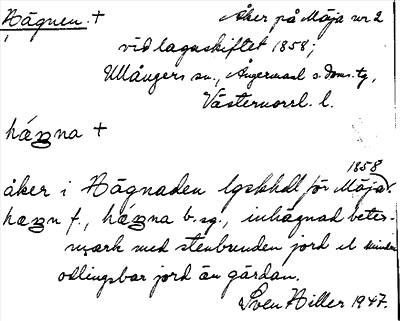 Hägnen. + Åker på Mäja nr 2
vid lagaskiftet 1858;
Ullångers sn., Ångermanl. s. doms. tg,
Västernorrl. l.
håʒna +
1858
åker i Hägnaden lgskhdl för Mäja.
hæʒn f., håʒna b. sg., inhägnad betes-
mark med stenbunden jord el. mindre
odlingsbar jord än gärdan.
Sven Hiller 1947.